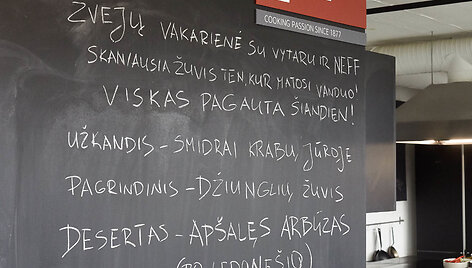 COOKING PASSION SINCE 1877
ŽVEJŲ VAKARIENĖ SU VYTARU IR NEFF
SKANIAUSIA ŽUVIS TEN, KUR MATOSI VANDUO!
VISKAS PAGAUTA ŠIANDIEN!
UŽKANDIS - SMIDRAI KRABŲ JŪROJE
PAGRINDINIS - DŽIUNGLIŲ ŽUVIS
DESERTAS - APŠALĘS ARBŪZAS
(PO LEDONEŠIO)